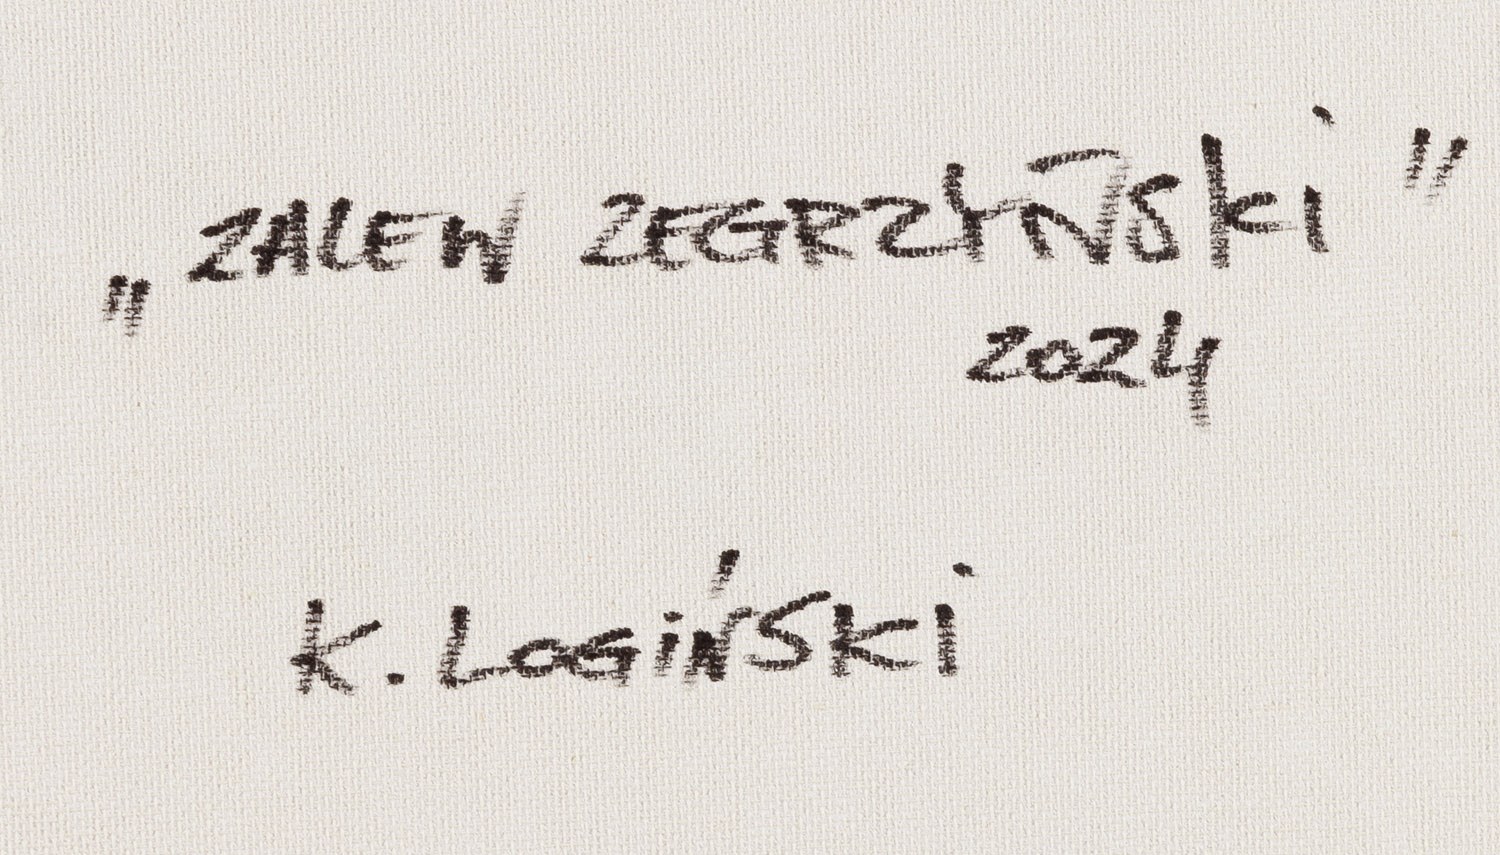 „ZALEW ZEGRZYŃSki"
2024
K. LOGIŃSKi